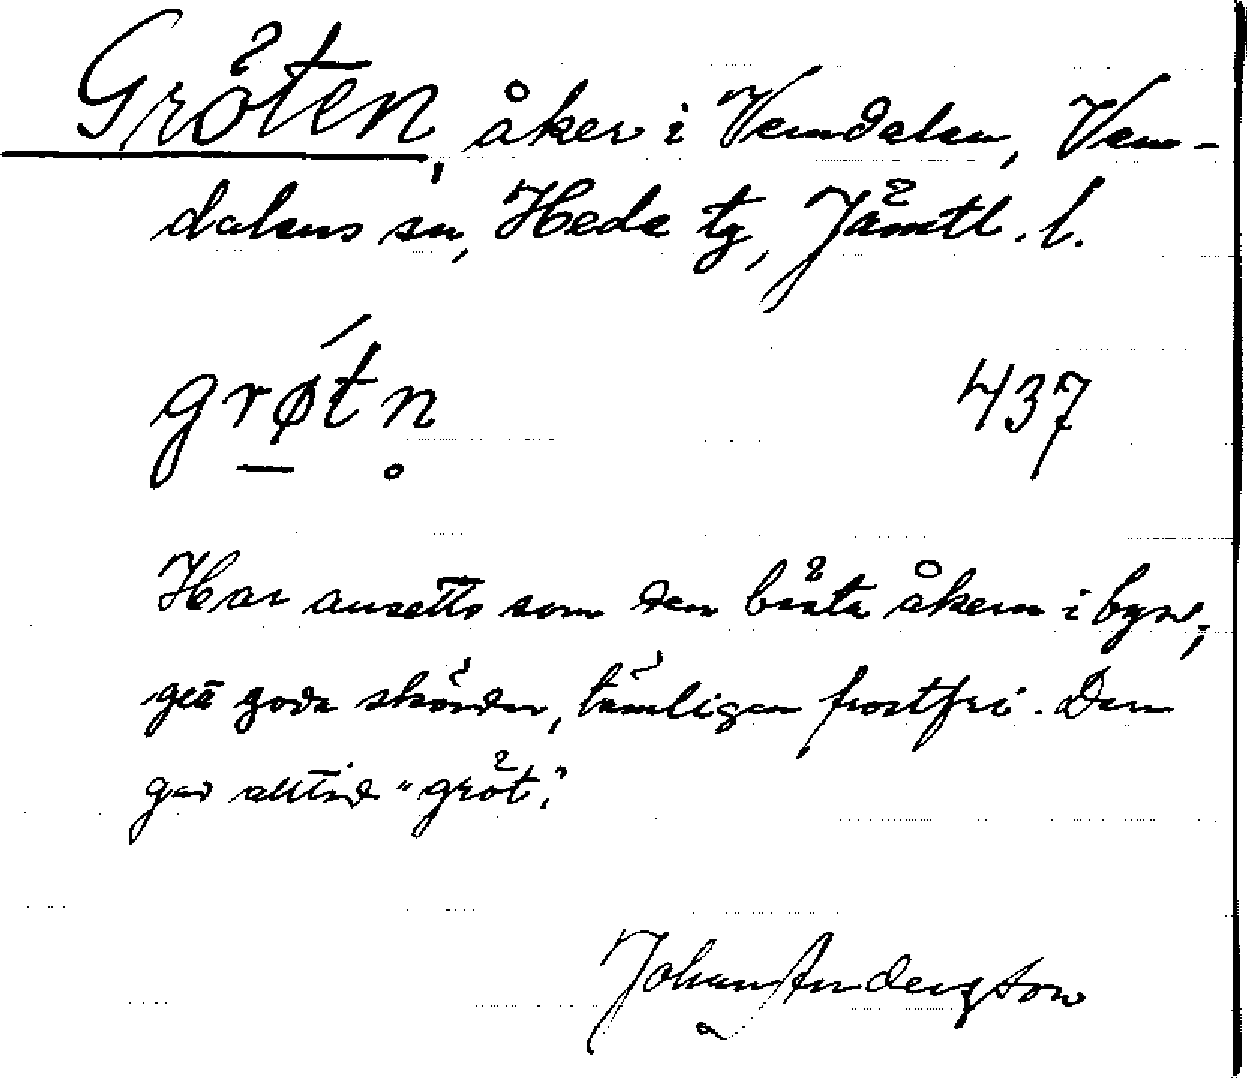 Gröten, åker i Vemdalen, Vem-
dalens sn, Hede tg, Jämtl. l.
grǿt n̥ 437
Har ansetts som den bästa åkern i byn,
gett goda skördar, tämligen frostfri. Den
gav alltid "gröt".
Johan Andersson